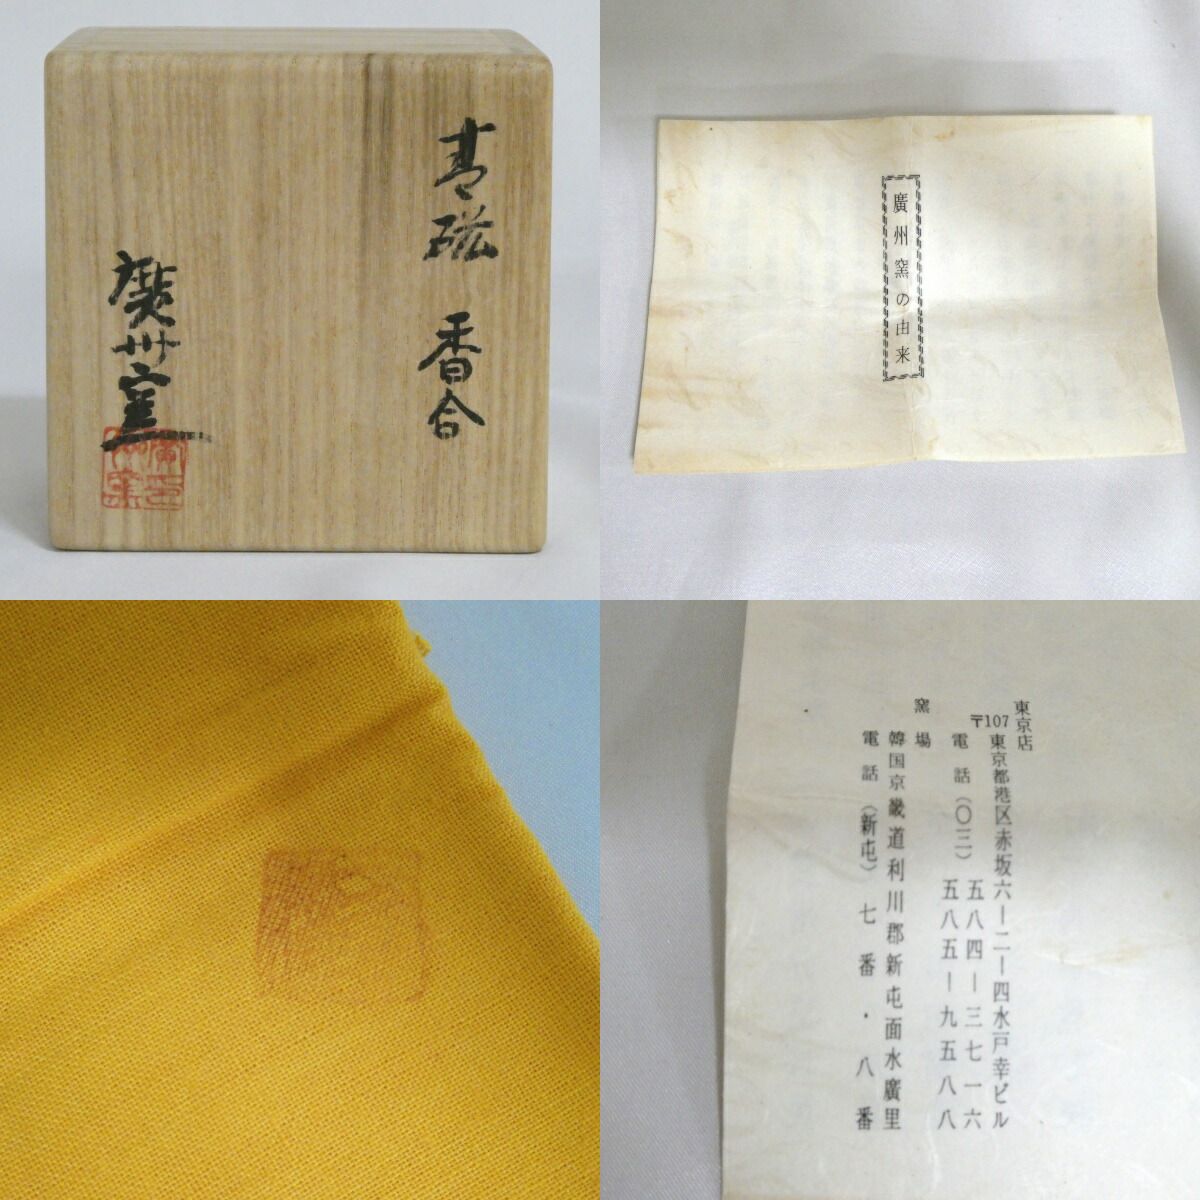 青磁 香合
廣州窯
廣州窯の由来
東京店
〒107 東京都港区赤坂六ー二ー四水戸幸ビル
電話(〇三)五八四ー三七一六
五八五ー九五八八
窯場
韓国京畿道利川郡新屯面水廣里
電話(新屯)七番・八番